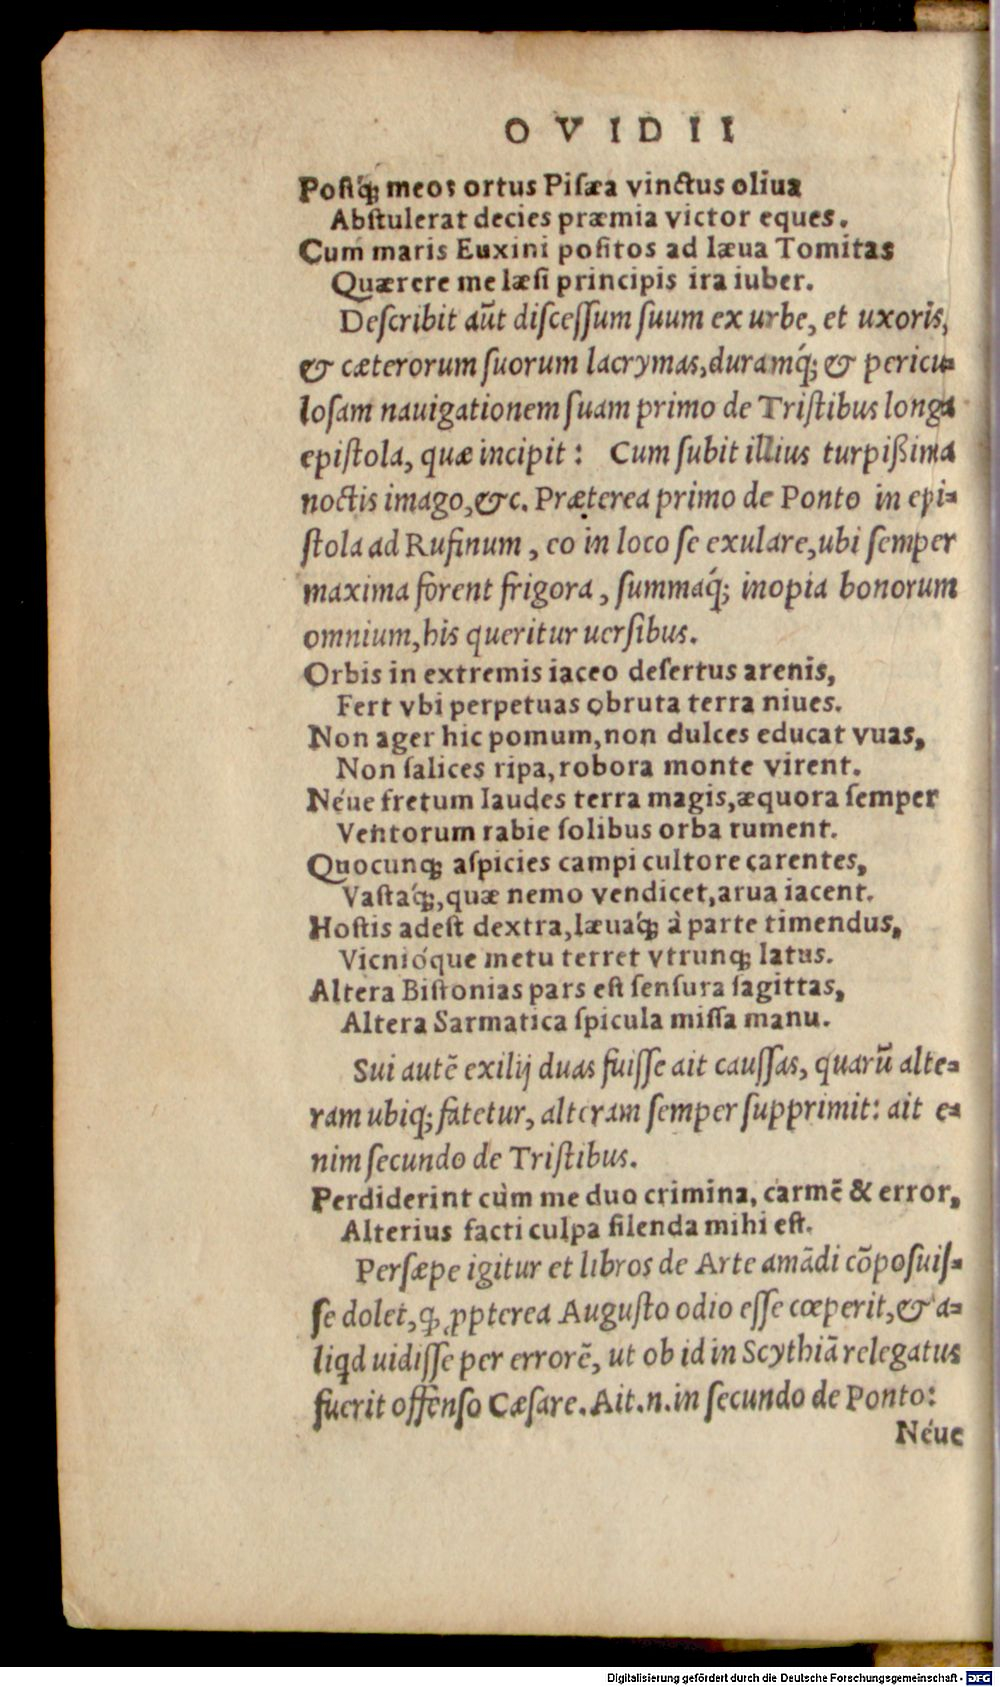 OVIDII
Postq́; meos ortus Pisæa vinctus oliua
Abstulerat decies præmia victor eques.
Cum maris Euxini positos ad læua Tomitas
Quærere me læsi principis ira iuber.
Describit aūt discessum suum ex urbe, et uxoris,
& cæterorum suorum lacrymas, duramq́; & pericu=
losam nauigationem suam primo de Tristibus longa
epistola, quæ incipit: Cum subit illius turpißima
noctis imago, &c. Præterea primo de Ponto in epi=
stola ad Rufinum, eo in loco se exulare, ubi semper
maxima forent frigora, summaq́; inopia bonorum
omnium, his queritur uersibus.
Orbis in extremis iaceo desertus arenis,
Fert vbi perpetuas obruta terra niues.
Non ager hic pomum, non dulces educat vuas,
Non salices ripa, robora monte virent.
Néue fretum laudes terra magis, æquora semper
Ventorum rabie solibus orba tument.
Quocunq; aspicies campi cultore carentes,
Vastaq́;, quæ nemo vendicet, arua iacent.
Hostis adest dextra, læuaq́; à parte timendus,
Vicnióque metu terret vtrunq; latus.
Altera Bistonias pars est sensura sagittas,
Altera Sarmatica spicula missa manu.
Sui autē exilij duas fuisse ait caussas, quarū alte=
ram ubiq; fatetur, alteram semper supprimit: ait e=
nim secundo de Tristibus.
Perdiderint cùm me duo crimina, carmē & error,
Alterius facti culpa silenda mihi est.
Persæpe igitur et libros de Arte amādi cōposuis=
se dolet, ꝙ ꝓpterea Augusto odio esse cœperit, & a=
liqd uidisse per errorē, ut ob id in Scythiā relegatus
fuerit offenso Cæsare. Ait.n. in secundo de Ponto:
Néue
Digitalisierung gefördert durch die Deutsche Forschungsgemeinschaft - DFG